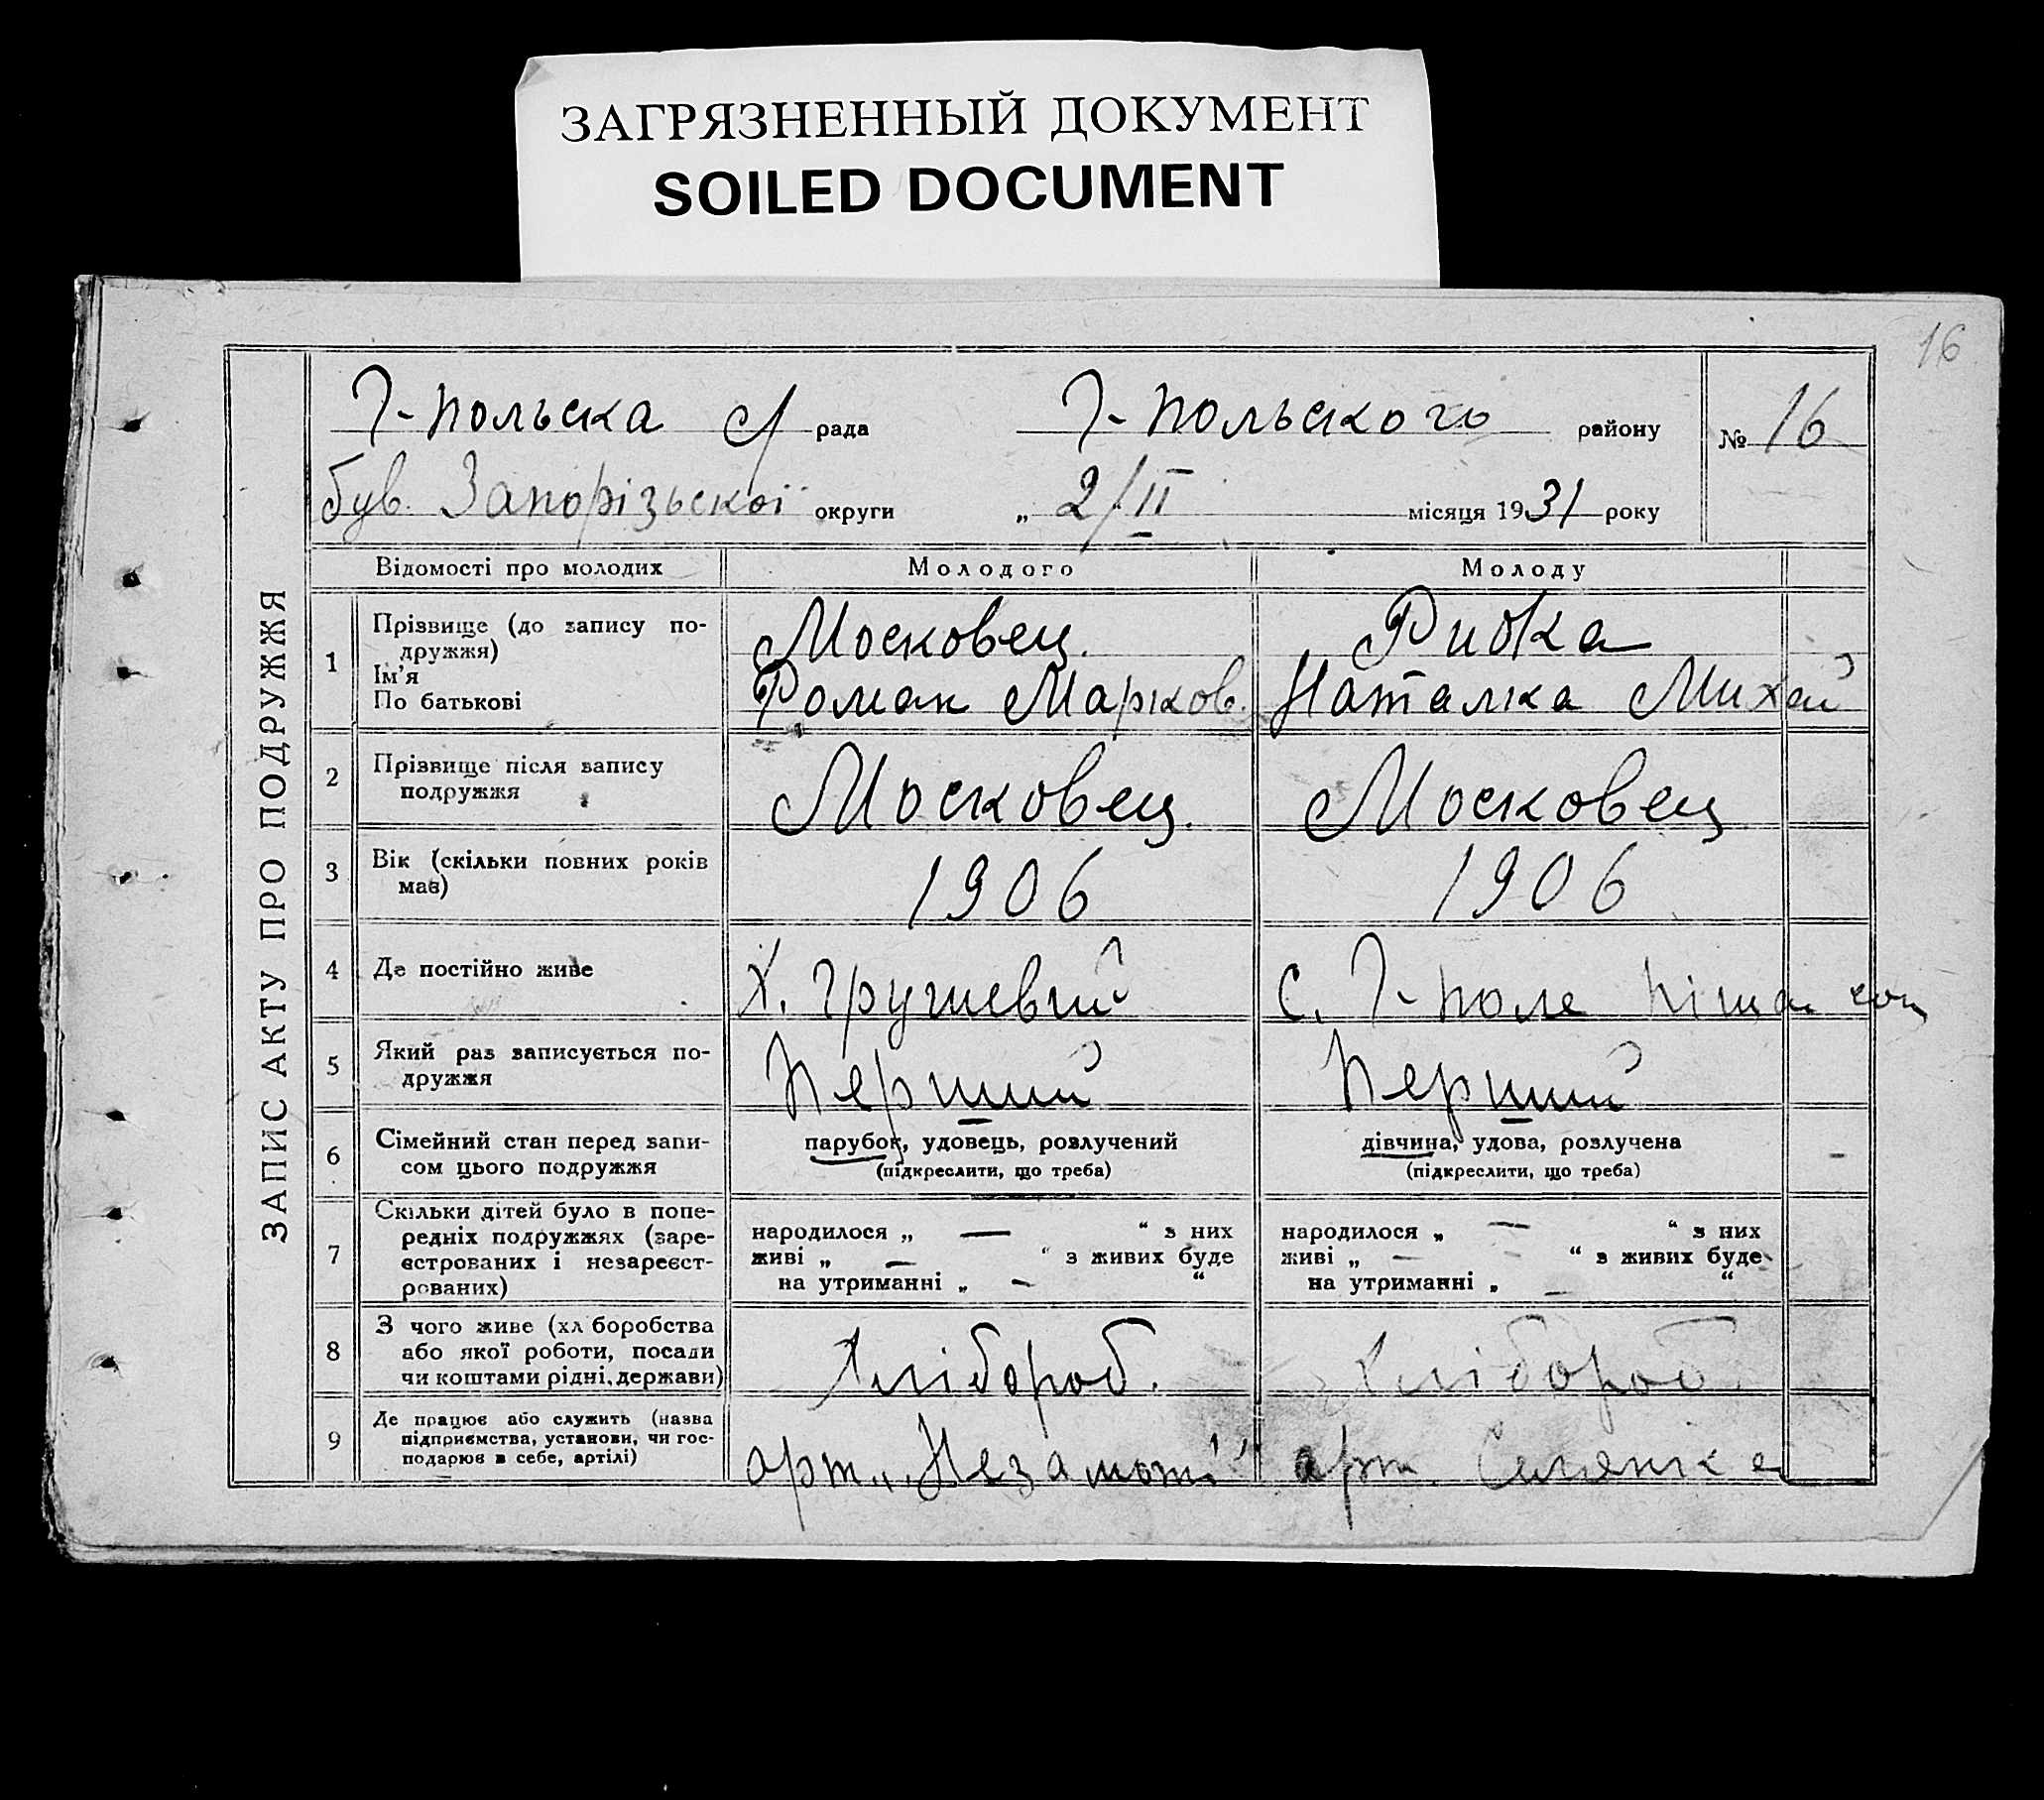 ЗАГРЯЗНЕННЫЙ ДОКУМЕНТ
SOILED DOCUMENT
16
ЗАПИС АКТУ ПРО ПОДРУЖЖЯ
Г-Польська с/ рада Г-Польського району № 16
був. Запорізької округи „ 2/II місяця 1931 року
Відомості про молодих Молодого Молоду
1 Прізвище (до запису по-
дружжя) Московец. Рибка
Ім'я
По батькові Роман Марков. Наталка Михай
2 Прізвище після запису
подружжя Московец. Московец
3 Вік (скільки повних років
має) 1906 1906
4 Де постійно живе Х. Грушевий С. Г-Поле
5 Який раз записується по-
дружжя Перший Перший
6 Сімейний стан перед запи-
сом цього подружжя
парубок, удовець, розлучений
(підкреслити, що треба)
дівчина, удова, розлучена
(підкреслити, що треба)
7 Скільки дітей було в попе-
редніх подружжях (заре-
єстрованих і незареєст-
рованих)
народилося „ — “ з них
живі „ — “ з живих буде
на утриманні „ — “
народилося „ — “ з них
живі „ — “ з живих буде
на утриманні „ — “
8 З чого живе (хліборобства
або якої роботи, посади
чи коштами рідні, держави)
Хлібороб. Хлібороб.
9 Де працює або служить (назва
підприємства, установи, чи гос-
подарює в себе, артілі)
арт. „Незаможн" арт. Селянка